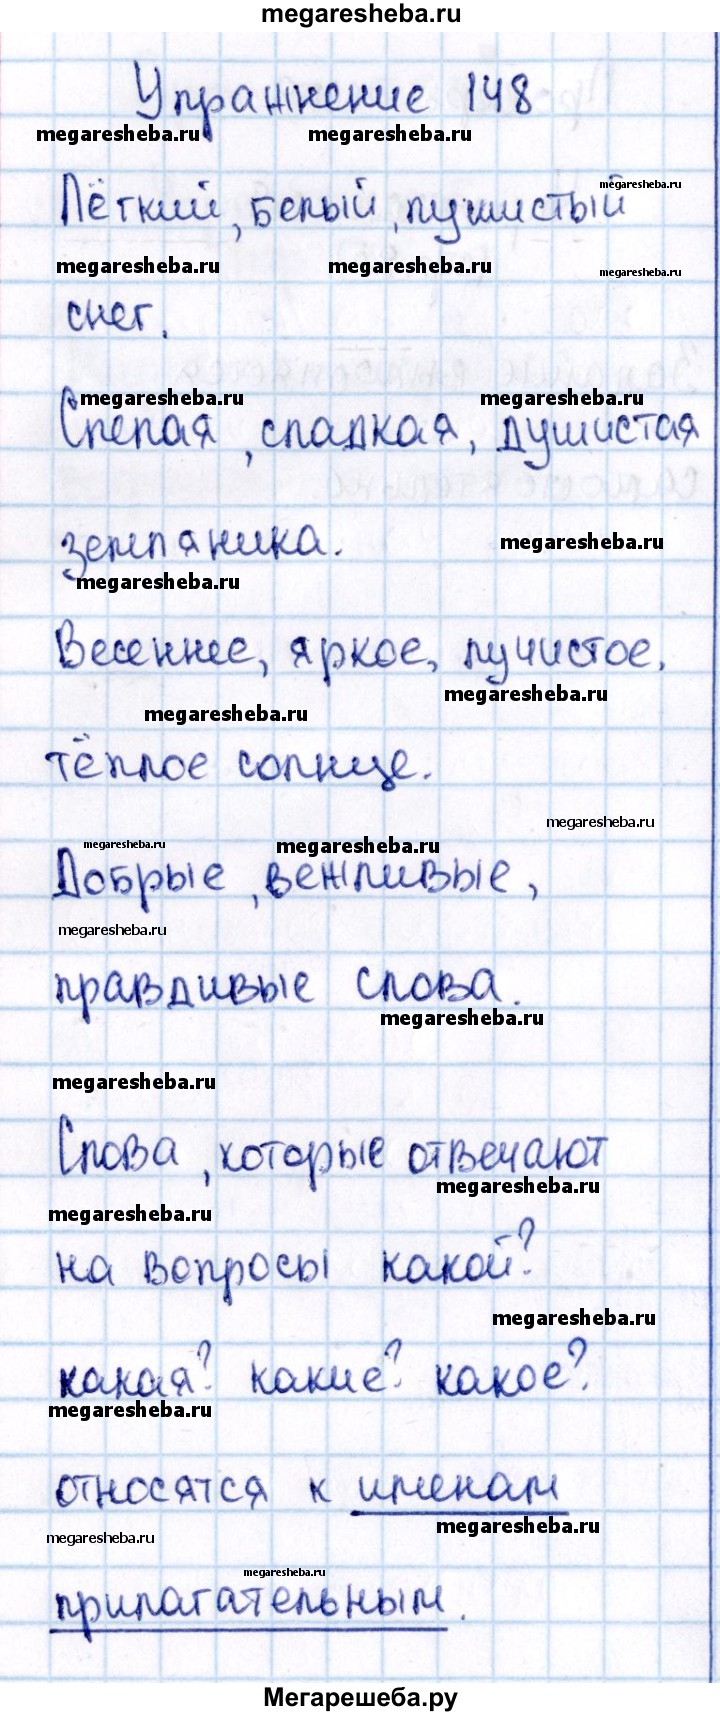 megaresheba.ru
Упражнение 148
megaresheba.ru megaresheba.ru
megaresheba.ru
Лёгкий, белый, пушистый
megaresheba.ru megaresheba.ru megaresheba.ru
снег.
megaresheba.ru megaresheba.ru
Спелая, сладкая, душистая
земляника.
megaresheba.ru
megaresheba.ru
Весеннее, яркое, лучистое,
megaresheba.ru
megaresheba.ru
тёплое солнце.
megaresheba.ru
megaresheba.ru megaresheba.ru
Добрые, вежливые,
megaresheba.ru
правдивые слова.
megaresheba.ru
megaresheba.ru
Слова, которые отвечают
megaresheba.ru
megaresheba.ru
на вопросы какой?
megaresheba.ru
какая? какие? какое?
megaresheba.ru
относятся к именам
megaresheba.ru
megaresheba.ru
megaresheba.ru
прилагательным.
Мегарешеба.ру